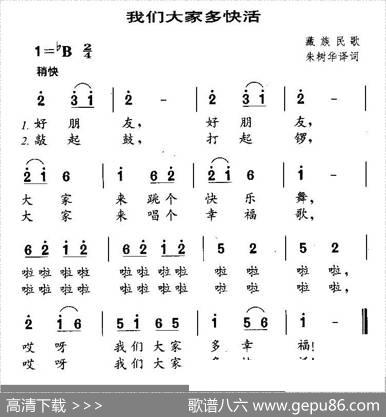 我们大家多快活
1=♭B 2/4
藏族民歌
朱树华译词
稍快
2 3 1 | 2 - | 2 3 1 | 2 - |
1. 好 朋 友， 好 朋 友，
2. 敲 起 鼓， 打 起 锣，
2 1 6 | 1 6 2 | 2 1 2 | 6 - |
大 家 来 跳个 快 乐 舞，
大 家 来 唱个 幸 福 歌，
6 2 1 2 | 6 2 1 2 | 5 2 | 5 2 |
啦啦 啦啦 啦啦 啦啦 啦 啦 啦 啦，
啦啦 啦啦 啦啦 啦啦 啦 啦 啦 啦，
2 1 6 | 5 1 6 5 | 5 5 6 | 5 - |
哎 呀 我们 大家 多 幸 福！
哎 呀 我们 大家 多
高清下载 >>>
歌谱八六 www.gepu86.com